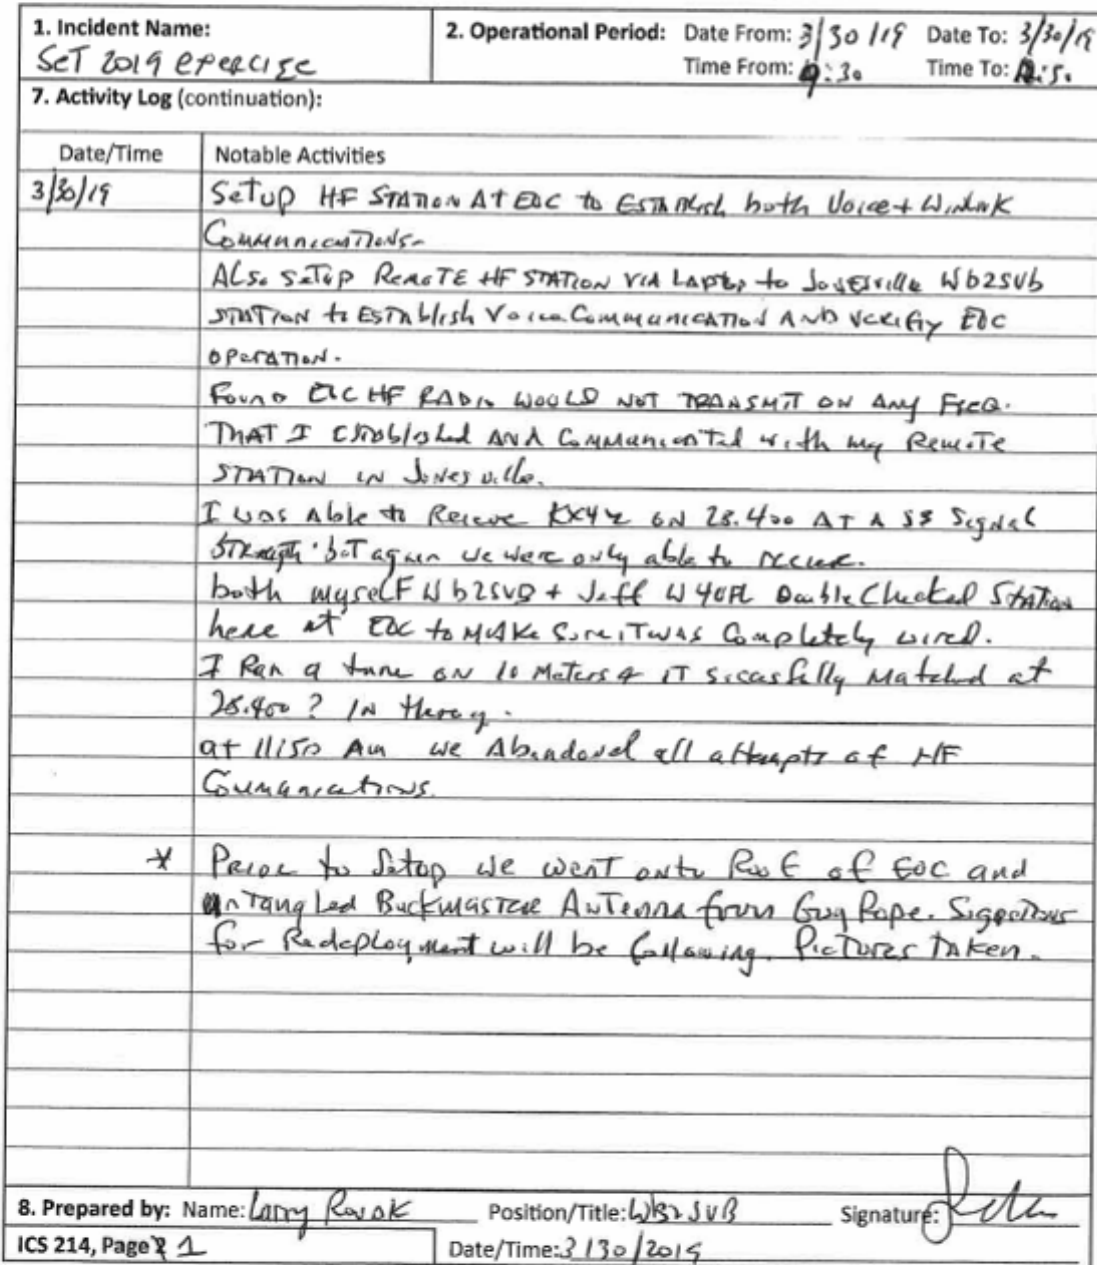 1. Incident Name:
SET 2019 exercise
2. Operational Period: Date From: 3/30/19 Date To: 3/30/19
Time From: 9:30 Time To:
7. Activity Log (continuation):
Date/Time Notable Activities
3/30/19 Setup HF STATION AT EOC to ESTABlish both Voice + Winlink
Communications-
ALSo SeTup RemoTE HF STATION VIA LAPtop to Jonesville Wb2SUb
STATION to ESTAblish Voice Communication AND VERIFY EOC
OPERATION.
Found EOC HF RADIO WOULD NOT TRANSMIT ON ANY FREQ.
THAT I Established AND Communicated with my RemoTe
STATION IN Jonesville.
I was Able to Receive KX4Z ON 28.400 AT A S5 Signal
STRength but again we were only able to receive.
both myselF Wb2SUB + Jeff W4UFL Double Checked STATION
here at EOC to MAKe Sure iT was Completely wired.
I Ran a tune ON 10 Meters & iT sucessfully Matched at
28.400? IN theory.
at 11:50 Am we Abandoned all attempts of HF
Communications.
* PRIOR to Setup we wenT onto Roof of EOC and
unTangLed BuckmASTER AnTenna from Guy Rope.
for Redeployment will be following. PicTures TAKen.
8. Prepared by: Name: Larry Position/Title: WB2SUB Signature:
ICS 214, Page 1 Date/Time: 3/30/2019